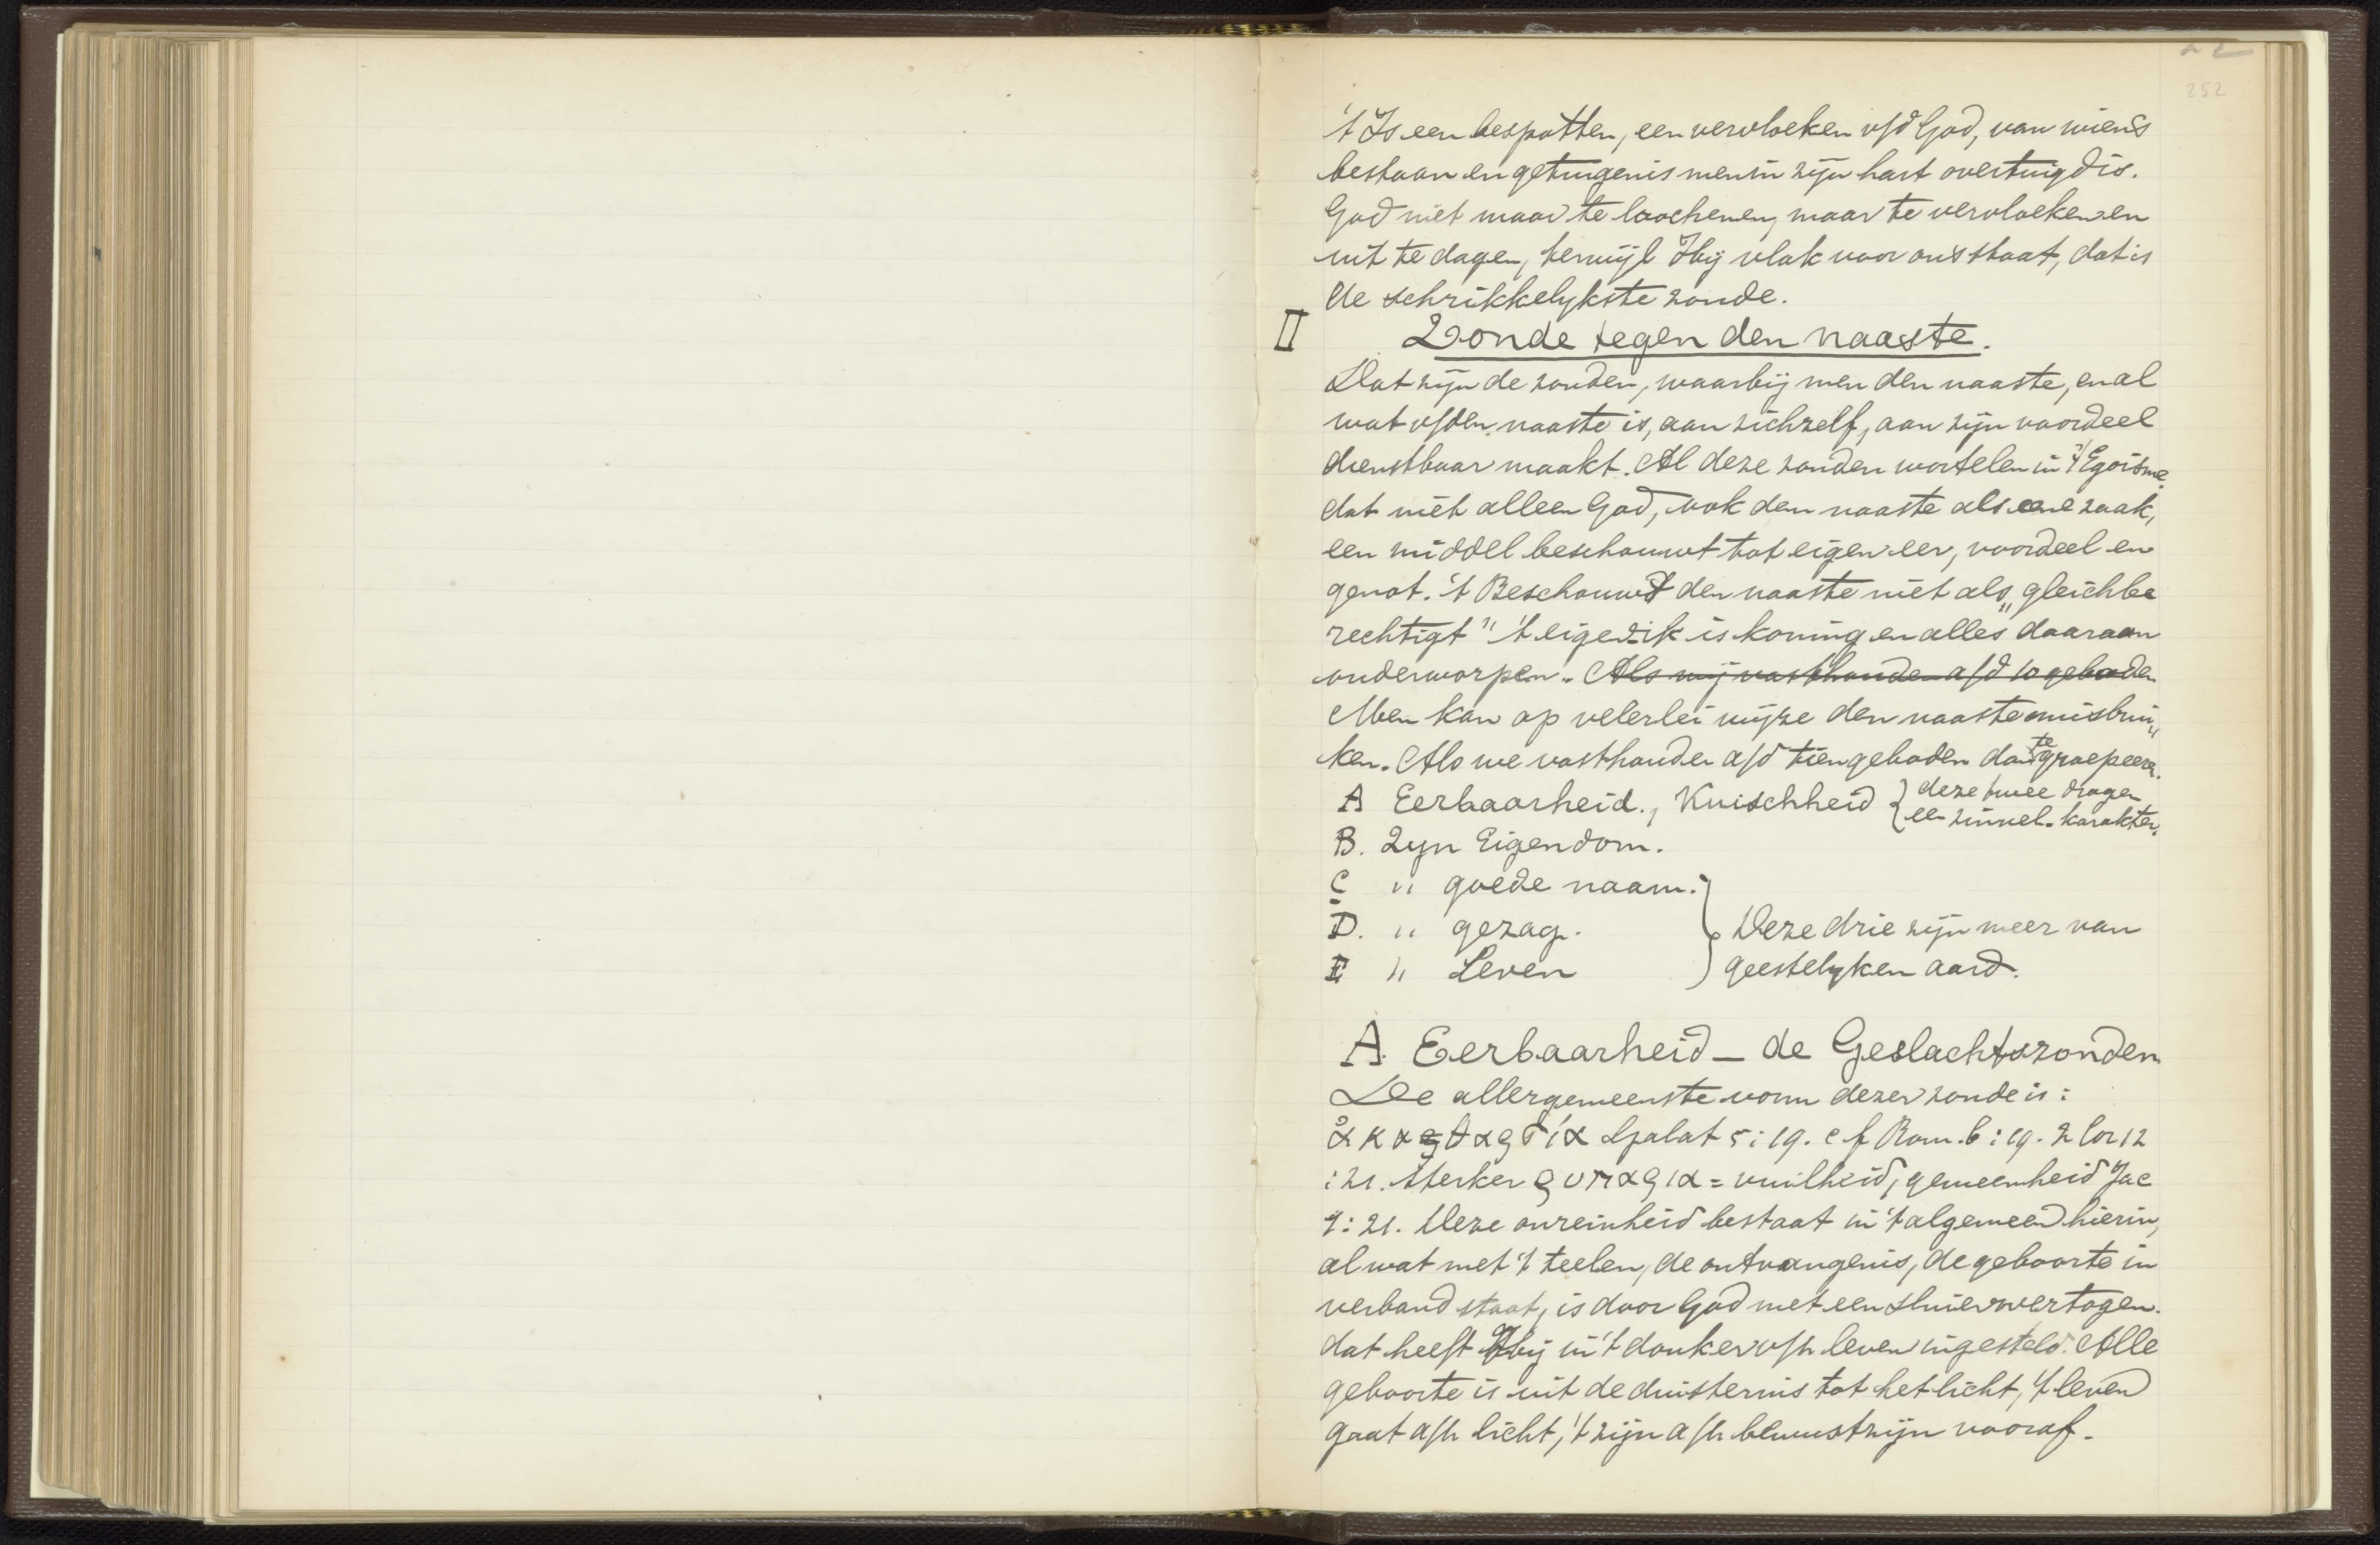 252
't Is een bespotten, een vervloeken v/d God, van wiens
bestaan en getuigenis men in zijn hart overtuigd is.
God niet maar te loochenen, maar te vervloeken en
uit te dagen, terwijl Hij vlak voor ons staat, dat is
de schrikkelykste zonde.
II Zonde tegen den naaste.
Dat zijn de zonden, waarbij men den naaste, en al
wat v/den naaste is, aan zichzelf, aan zijn voordeel
dienstbaar maakt. Al deze zonden wortelen in 't Egoisme
dat niet alleen God, ook den naaste als eene zaak,
een middel beschouwt tot eigen eer, voordeel en
genot. 't Beschouwt den naaste niet als „gleichbe
rechtigt" 't eigen ik is koning en alles daaraan
onderworpen. Als wij vasthouden a/d 10 geboden
Men kan op velerlei wijze den naaste misbrui„
ken. Als we vasthouden a/d tien geboden dan te groepeeren.
A Eerbaarheid., Kuischheid } deze twee dragen
een zinnel. karakter.
B. Zyn Eigendom.
C " goede naam.
D. " gezag. } Deze drie zijn meer van
E " Leven geestelyken aard.
A. Eerbaarheid – de Geslachtszonden
De allergemeenste vorm dezer zonde is:
ἀκαθαρσία Galat 5:19. cf Rom. 6:19. 2 Cor 12
:21. Sterker ῥυπαρια = vuilheid, gemeenheid Jac
1:21. Deze onreinheid bestaat in 't algemeen hierin,
al wat met 't teelen, de ontvangenis, de geboorte in
verband staat, is door God met een sluier overtogen.
dat heeft Hij in 't donker v/h leven ingesteld. Alle
geboorte is uit de duisternis tot het licht, 't leven
gaat a/h licht, 't zijn a/h bewustzijn vooraf.